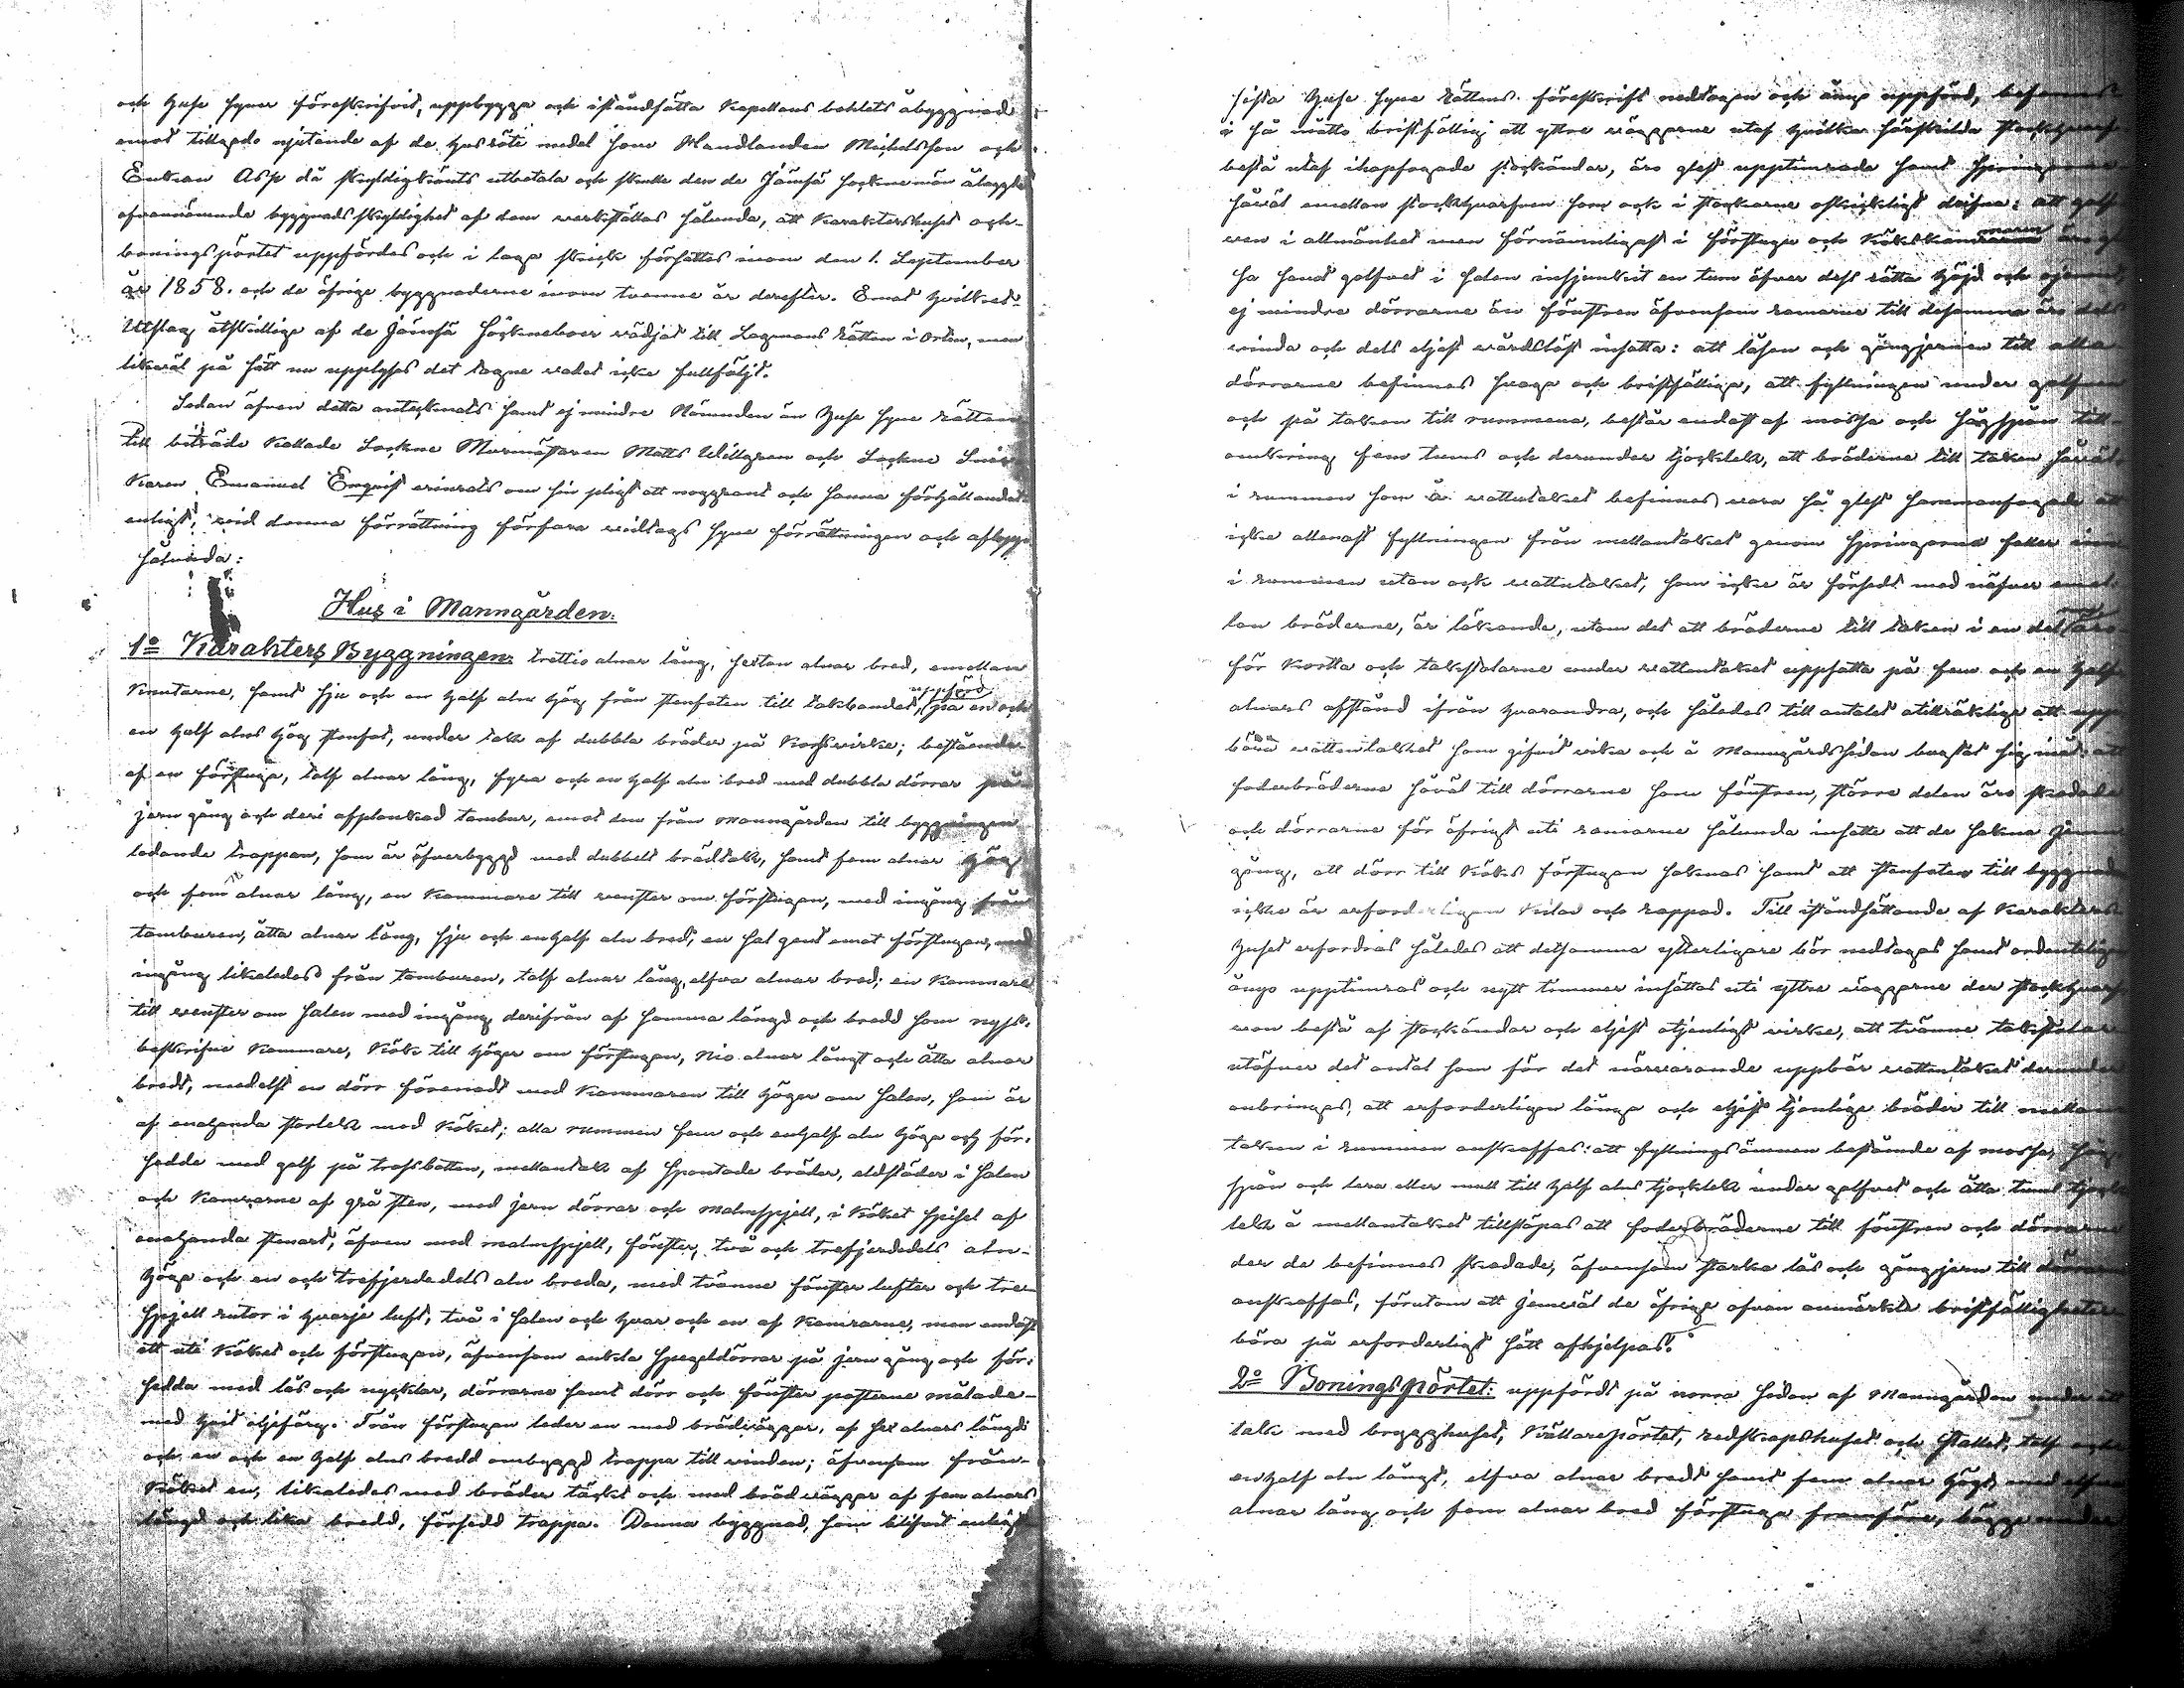 och Huse Syner föreskrifvit, uppbygga och iståndsätta Kapellans bohlets åbyggnad
emot tillgodo njutande af de husröte medel som Handlanden Michelsson och
Enkian Asp då skyldigkänts utbetala och skulle den de Jämsä Sockenemän ålagde
ofvannämnde byggnads skyldighet af dem verkställas sålunda, att Karaktershuset och
boningspörtet uppfördes och i laga skick försattes inom den 1. September
år 1858. och de öfrige byggnaderne inom tvenne år derefter. Emot hvilket
Utslag åtskillige af de Jämsä Sockneboer vädjat till Lagmans Rätten i Orten, men
likväl på sätt nu upplyses det tagne vadet icke fullföljt.
Sedan äfven detta antecknats samt ej mindre Nämnden än Huse Syne Rättens
till biträde kallade Sockne Murmästaren Matts Willgren och Sockne Snic
karen Emanuel Enqvist erinrats om sin pligt att noggrant och sanna förhållandet
enligt, vid denna förrättning förfara vidtogs syne förrättningen och aflopp
sålunda:
Hus i Manngården.
1o Karakters Byggningen: trettio alnar lång, sexton alnar bred, emellan
knutarne, samt sju och en half aln hög från stenfoten till takbandet, uppförd på en och
en half alns hög stenfot, under tak af dubbla bräder på Korsvirke; bestående
af en förstuga, tolf alnar lång, fyra och en half aln bred med dubbla dörrar på
jern gång och deri afplankad tambur, emot den från manngården till byggningen
ledande trappan, som är öfverbyggd med dubbelt brädtak, samt fem alnar hög
och fem alnar lång, en Kammare till venster om förstugan, med ingång från
tamburen, åtta alnar lång, sju och en half aln bred; en sal gent emot förstugan, med
ingång likaledes från tamburen, tolf alnar lång, elfva alnar bred; en Kammare
till venster om salen med ingång derifrån af samma längd och bredd som nyss
beskrifne Kammare, Kök till höger om förstugan, nio alnar långt och åtta alnar
bredt, medelst en dörr förenadt med Kammaren till höger om salen, som är
af enahanda storlek med Köket; alla rummen fem och enhalf aln höga och för-
sedde med golf på trossbotten, mellantak af spontade bräder, eldstäder i salen
och Kamrarne af grå sten, med jern dörrar och malmspjell, i Köket spisel af
enahanda stenart, äfven med malmspjell, fönster, två och trefjerdedels aln
höga och en och trefjerdedels aln breda, med tvänne fönster lufter och tre
spjell rutor i hvarje luft, två i salen och hvar och en af Kamrarne, men endast
ett uti Köket och förstugan, äfvensom enkla spegeldörrar på jern gång och för-
sedda med lås och nycklar, dörrarne samt dörr och fönster posterne målade
med hvit oljefärg. Från förstugan leder en med brädväggar, af sex alnars längd
och en och en half alns bredd ombyggd trappa till vinden; äfvensom från
Köket en, likaledes med bräder täckt och med bräd väggar af fem alnars
längd och lika bredd, försedd trappa. Denna byggnad, som blifvit enligt
sista Huse Syne Rättens föreskrift nedtagen och ånyo uppförd, befinnes
i så måtto bristfällig att yttre väggarne utaf hvilka särskilda stockhvarf
bestå utaf ihopfogade stockändar, äro glest upptimrade samt springorne
såväl emellan stockhvarfven som ock i stockarne oskickligt drifna: att golf
ven i allmänhet men förnämligast i förstuga och Kökskammaren
sa samt golfvet i salen insjunkit en tum öfver dess rätta höjd och ojemnt,
ej mindre dörrarne än fönstren äfvensom ramarne till desamma äro dels
vinda och dels eljest vårdslöst insatta: att låsen och gångjernen till alla
dörrarne befinnes svaga och bristfälliga, att fyllningen under golfven
och på taken till rummena, består endast af mossa och sågspån till
omkring fem tums och derunder tjocklek, att bräderne till taken såväl
i rummen som å vattutaket befinnes vara så glest sammanfogade att
icke allenast fyllningen från mellantaket genom springorna faller inn
i rummen utan ock vattutaket, som icke är försedt med näfver emel-
lan bräderne, är läkande, utom det att bräderne till taken i en del äro
för korta och takstolarne under vattentaket uppsatta på fem och en half
alnars afstånd ifrån hvarandra, och således till antalet otillräcklige att upp
bära vattentaket som gifvit vika och å Manngårdssidan bugtat sig inåt: att
foderbräderne såväl till dörrarne som fönstren, större delen äro skadade
och dörrarne för öfrigt uti ramarne sålunda insatte att de sakna jemn
gång, att dörr till Köks förstugan saknas samt att stenfoten till byggnaden
icke är erforderligen kilad och rappad. Till iståndsättande af Karakters
huset erfordras således att detsamma ytterligare bör nedtagas samt ordentligen
ånyo upptimras och nytt timmer insättas uti yttre väggarne der stockhvarf
ven bestå af stockändar och eljest otjenligt virke, att tvänne takstolar
utöfver det antal som för det närvarande uppbär vattentaket derunder
anbringas, att erforderligen långa och eljest tjenlige bräder till mellan
taken i rummen anskaffas: att fyllningsämnen bestående af mossa, såg
spån och lera eller mull till half alns tjocklek under golfvet och åtta tums tjock
lek å mellantaket tillstöpas att foderbräderne till fönstren och dörrarne
der de befinnes skadade, äfvensom starka lås och gångjern till dörrarne
anskaffas, förutom att jemväl de öfriga ofvan anmärkta bristfälligheter
böra på erforderligt sätt afhjelpas.
2o Boningspörtet: uppfördt på norra sidan af Manngården under ett
tak med brygghuset, Källarepörtet, redskapshuset och Stallet, tolf och
enhalf aln långt, elfva alnar bredt samt fem alnar högt, med elfva
alnar lång och fem alnar bred förstuga framföre, bägge under